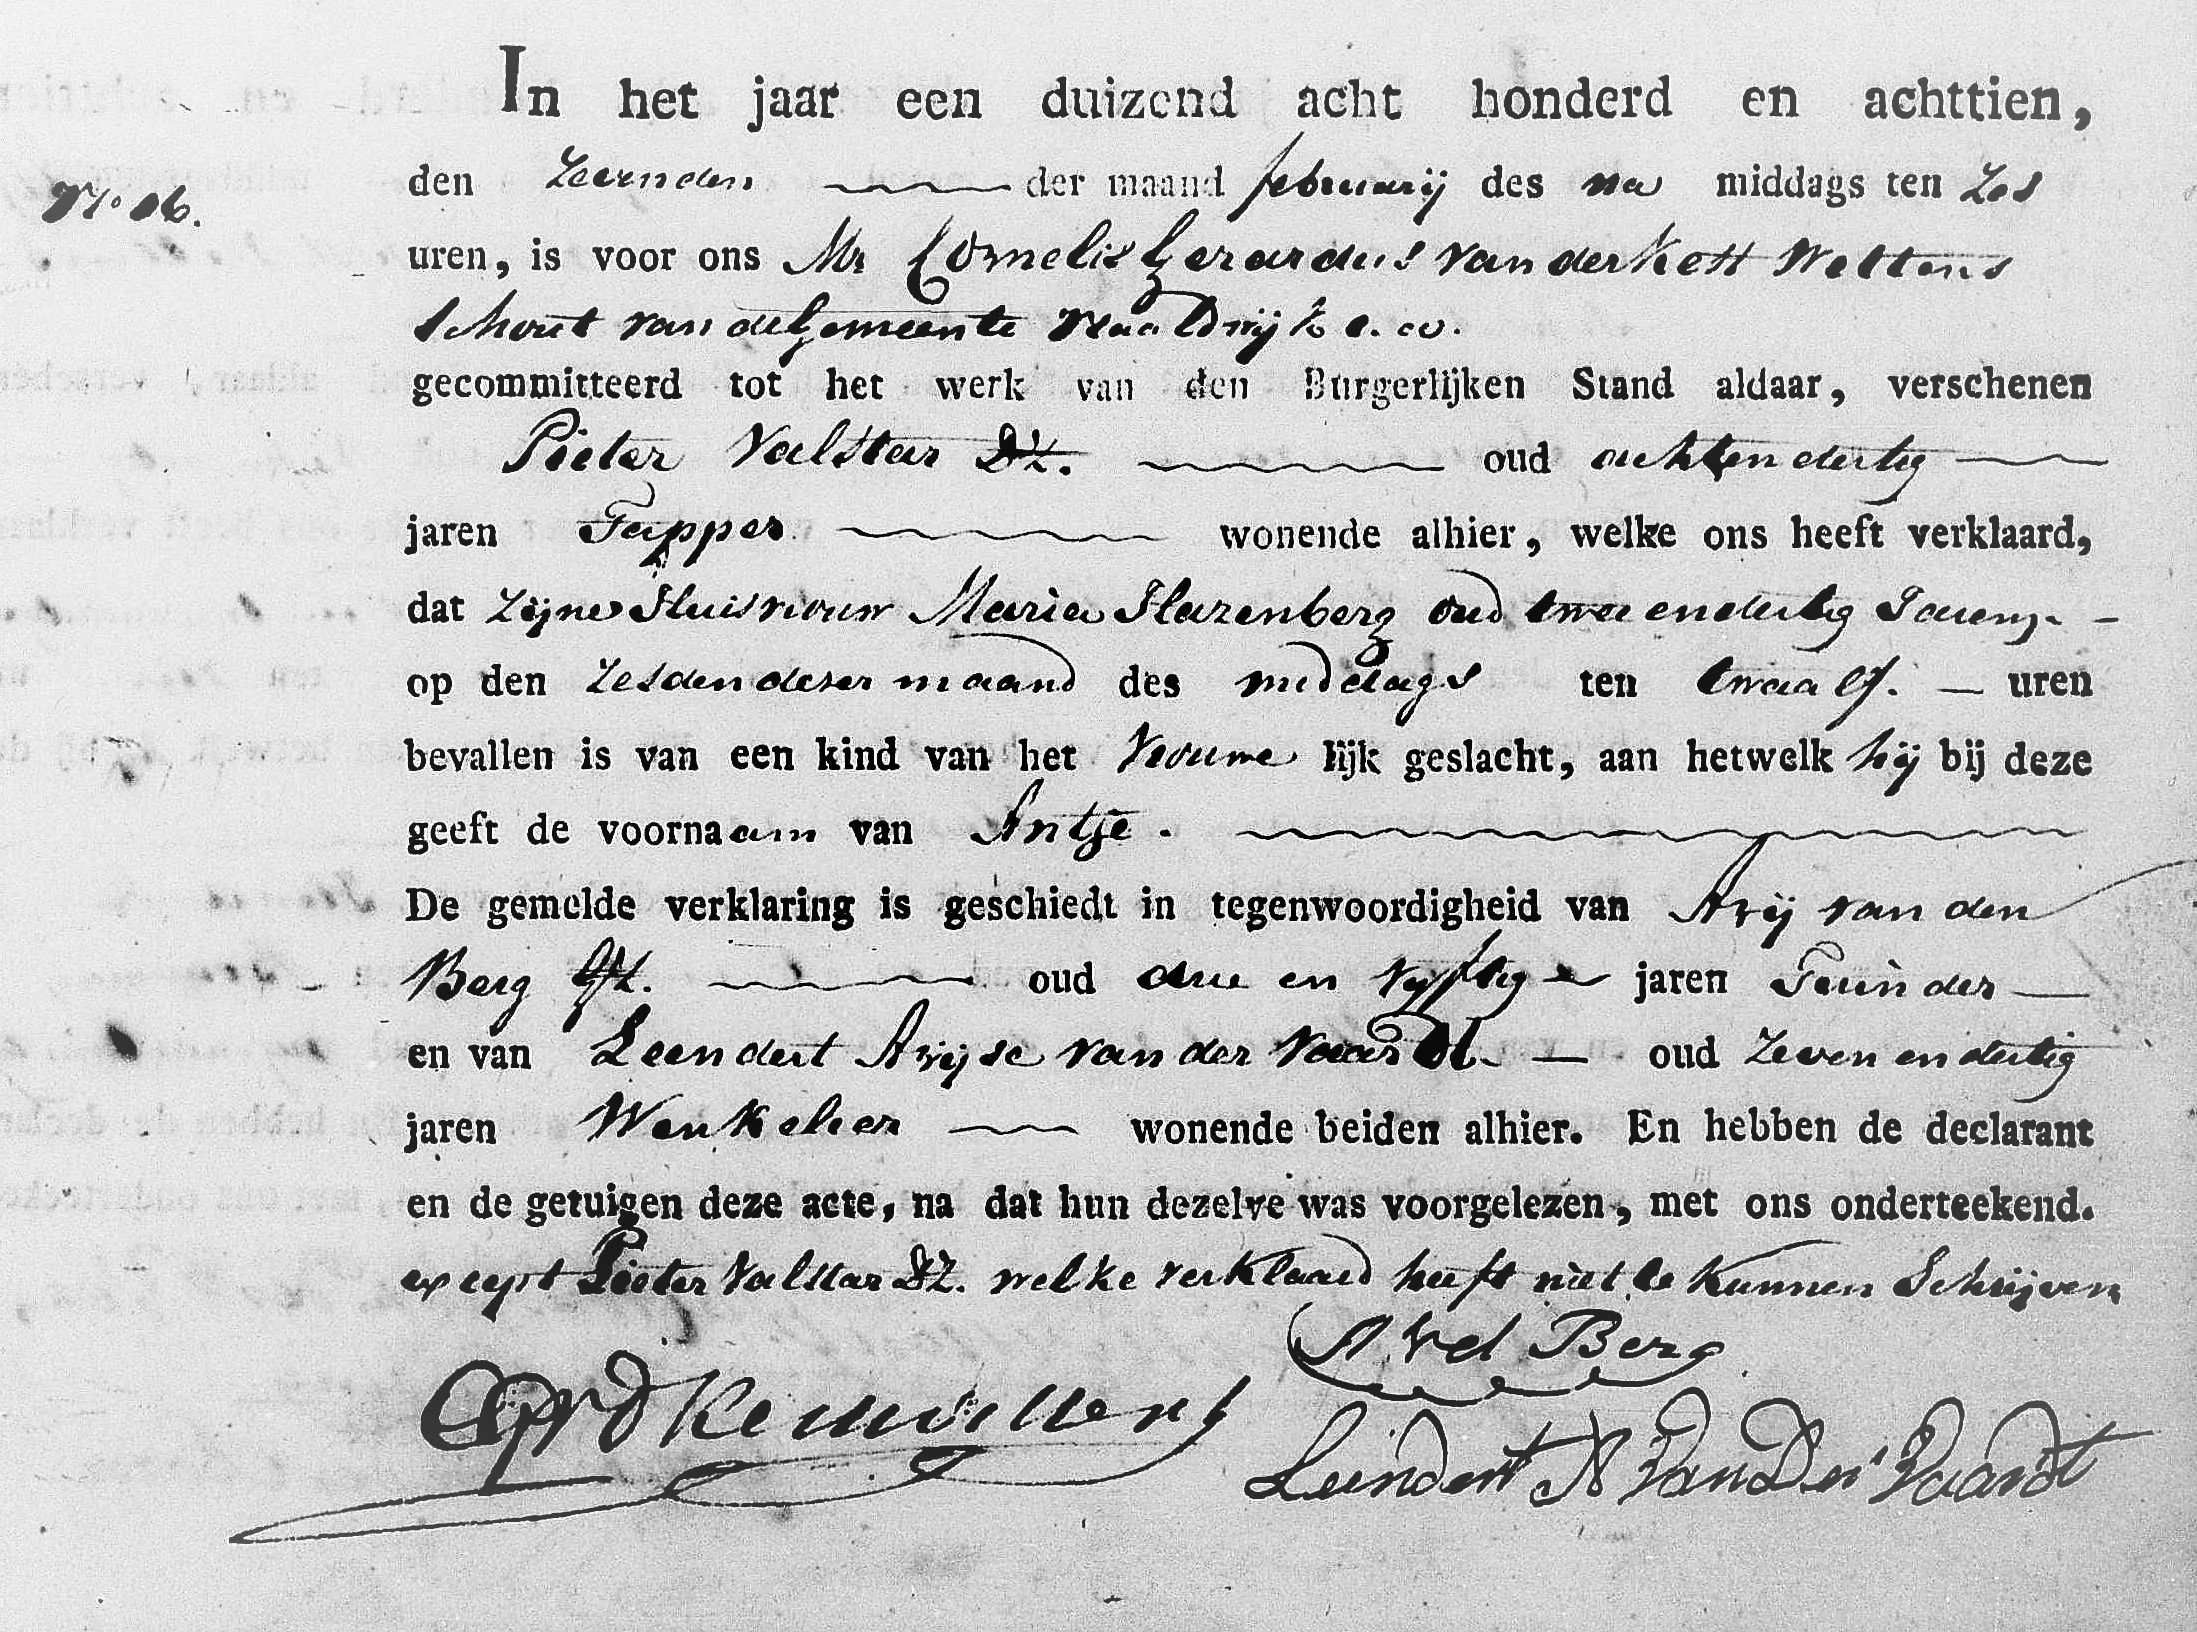 In het jaar een duizend acht honderd en achttien,
No 16.
den Zevenden der maand februarij des na middags ten Zes
uren, is voor ons Mr Cornelis Gerardus van der Kett Wettens
Schout van de Gemeente Naaldwijk e. w.
gecommitteerd tot het werk van den Burgerlijken Stand aldaar, verschenen
Pieter Valstar DZ. oud achtendertig
jaren Tapper wonende alhier, welke ons heeft verklaard,
dat Zijne Huisvrouw Maria Hazenberg oud twee endertig Jaren
op den Zesden dezer maand des middags ten twaalf. uren
bevallen is van een kind van het Vrouwe lijk geslacht, aan hetwelk hij bij deze
geeft de voornaam van Antje.
De gemelde verklaring is geschiedt in tegenwoordigheid van Arij van den
Berg GZ. oud drie en vyftig jaren Tuinder
en van Leendert Arijse van der Vaardt oud Zeven en dertig
jaren Winkelier wonende beiden alhier. En hebben de declarant
en de getuigen deze acte, na dat hun dezelve was voorgelezen, met ons onderteekend.
except Pieter Valstar DZ. welke verklaard heeft niet te kunnen Schrijven
A vd Berg
Leendert A Van Der Vaardt